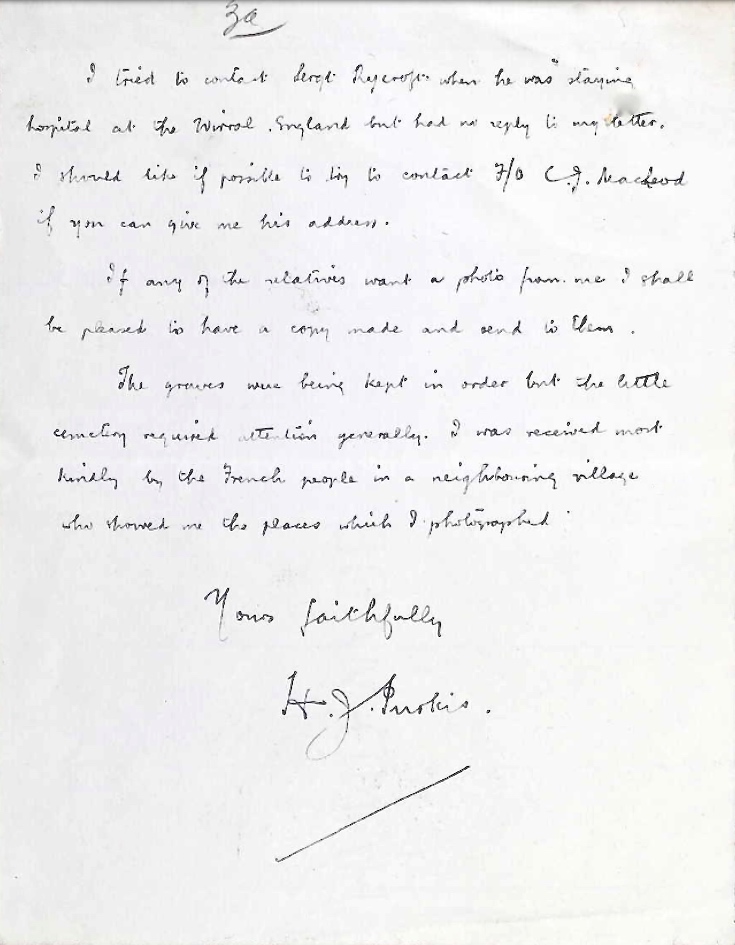 3a
I tried to contact Sergt Ryecroft when he was staying
hospital at the Wirral. England but had no reply to my letter.
I should like if possible to try to contact F/O C.J. MacLeod
if you can give me his address.
If any of the relatives want a photo from me I shall
be pleased to have a copy made and send to them.
The graves were being kept in order but the little
cemetery required attention generally. I was received most
kindly by the French people in a neighbouring village
who showed me the places which I photographed
Yours faithfully
H.J. Purkis.